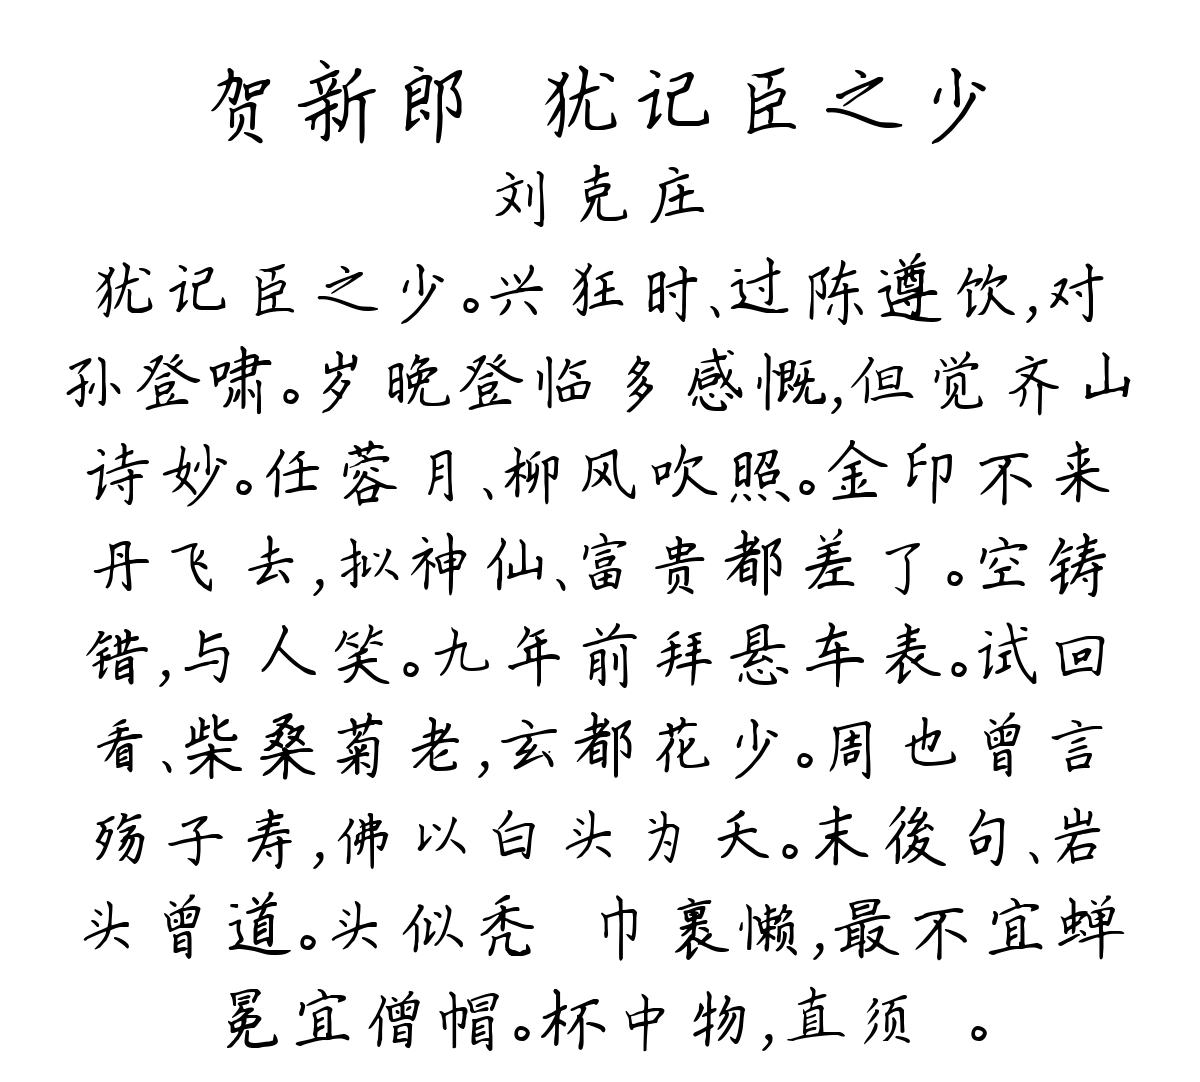 贺新郎 犹记臣之少
刘克庄
犹记臣之少。兴狂时、过陈遵饮,对
孙登啸。岁晚登临多感慨,但觉齐山
诗妙。任蓉月、柳风吹照。金印不来
丹飞去,拟神仙、富贵都差了。空铸
错,与人笑。九年前拜悬车表。试回
看、柴桑菊老,玄都花少。周也曾言
殇子寿,佛以白头为夭。末後句、岩
头曾道。头似秃 巾裹懒,最不宜蝉
冕宜僧帽。杯中物,直须 。